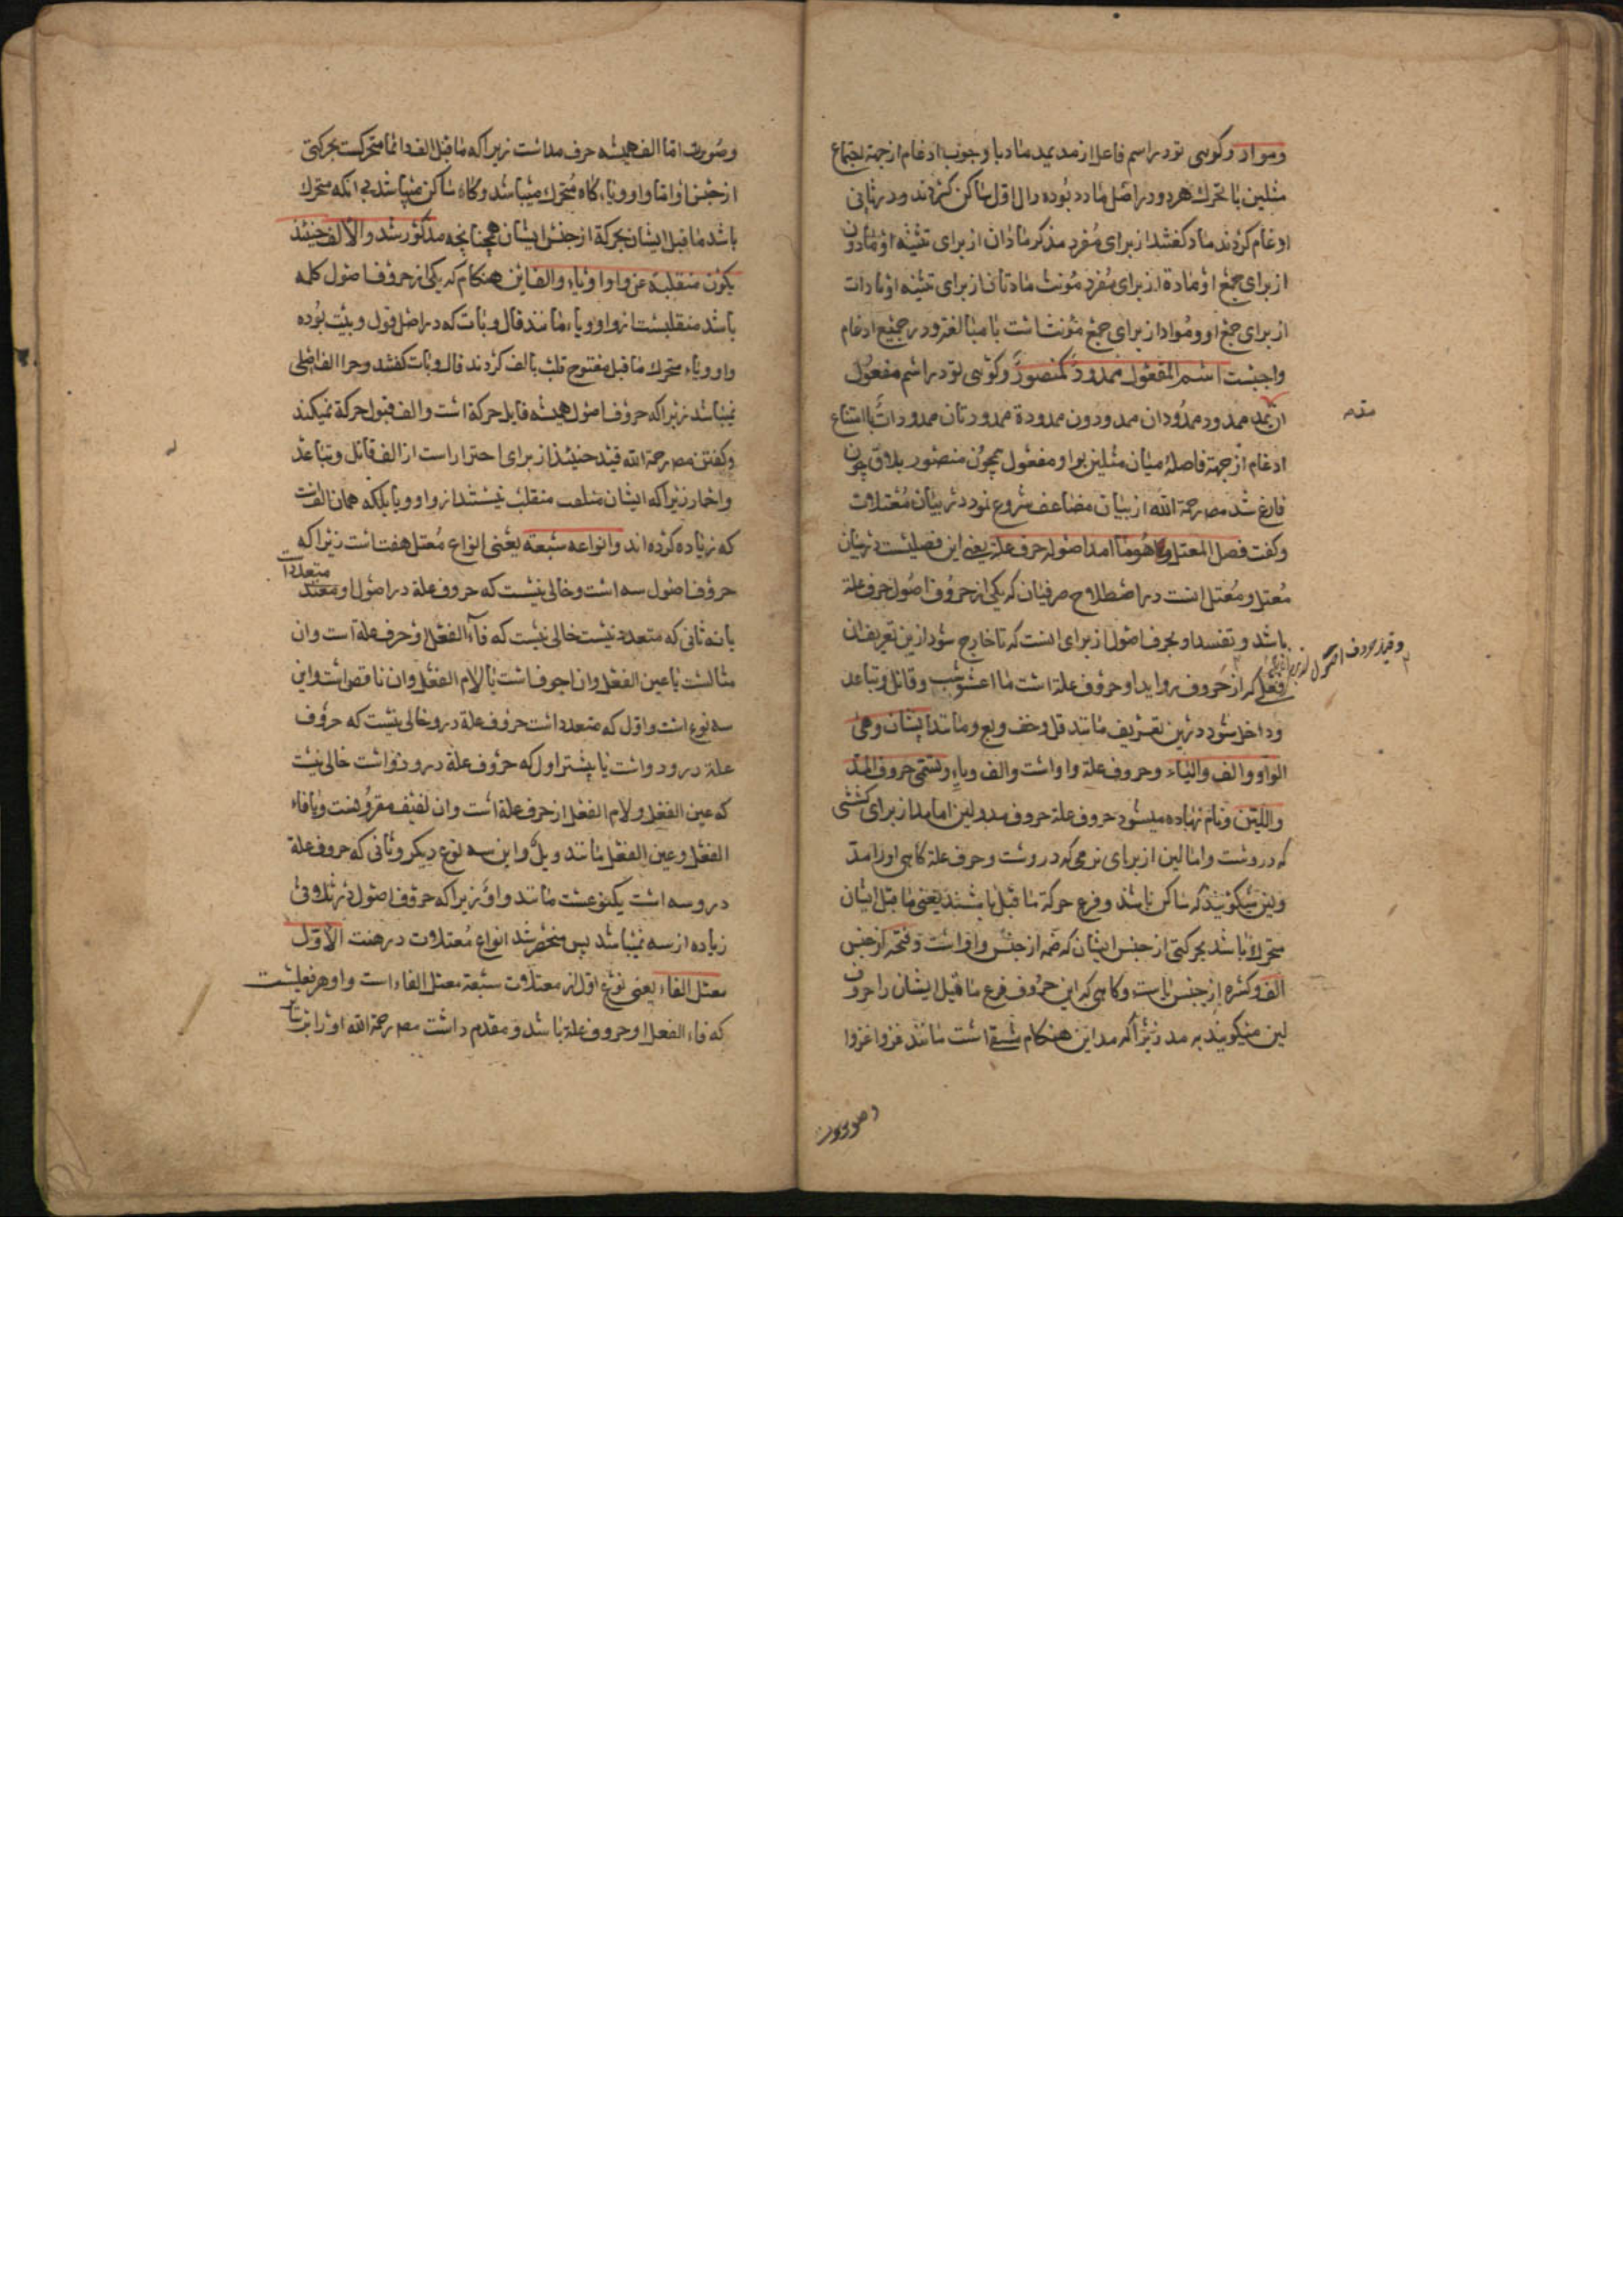 ومواد وکویی تو در اسم فاعل از مد یمد ماد با وجوب ادغام از جهة اجتماع
مثلین با تحرك هر دو در اصل مادد بوده دال اول ساکن کردند و در ثانی
ادغام کردند ماد کفتند از برای مفرد مذکر مادان از برای تثنیه او مادون
از برای جمع او مادة از برای مفرد مونث مادتان از برای تثنیه او مادات
از برای جمع او ومواد از برای جمع مونث است با مبالغة و در جمیع ادغام
واجبست اسم المفعول ممدود کمنصور وکویی تو در اسم مفعول
از یمد ممدود ممدودان ممدودون ممدودة ممدودتان ممدودات با امتناع
ادغام از جهة فاصله میان مثلین بواو مفعول همچون منصور بلا فرق چون
فارغ شد مصـ رحمة الله از بیان مضاعف شروع نمود در بیان معتلات
وکفت فصل المعتل وهو ما احد اصوله حرف علة یعنی این فصلیست در بیان
معتل و معتل انست در اصطلاح صرفیان که یکی از حروف اصول حرف علة
باشد و تفسد او بحرف اصول از برای انست که تا خارج شود ازین تعریف ان
فعلی که از حروف زواید او حروف علة است مااعشوشب وقاتل وتباعد
وداخل شود درین تعریف مانند قل وخف وبع ومانند ایشان وهی
الواو والف والیاء وحروف علة واو است والف ویاء وتسمی حروف المد
واللین ونام نهاده میشود حروف علة حروف مد ولین اما مد از برای کششی
که دروست واما لین از برای نرمی که دروست وحرف علة کاهی او را مد
ولین میکویند که ساکن باشد وفرع حرکة ما قبل باشند یعنی ما قبل ایشان
متحرك باشد بحرکتی از جنس ایشان که ضمه از جنس واو است وفتحه از جنس
الف وکسره از جنس یاست وکاهی که این حروف فرع ما قبل ایشان را حروف
لین میکویند به مد زیرا که مد این هنکام منتفی است مانند غزوا غزوا
وصورت
مقدمه
وقید بحروف اصول از برای
وصورت اما الف همیشه حرف مد است زیرا که ما قبل الف دائما متحرکست بحرکتی
از جنس او اما واو ویاء کاه متحرك میباشد وکاه ساکن میباشد بی انکه متحرك
باشد ما قبل ایشان بحرکة از جنس ایشان همچنانچه مذکور شد والالف حینئذ
یکون منقلبة عن واو او یاء والف این هنکام که یکی از حروف اصول کلمه
باشد منقلبست از واو ویاء مانند قال وبات که در اصل قول وبیت بوده
واو ویاء متحرك ما قبل مفتوح قلب بالف کردند قال وبات کفتند وچرا الف اصلی
نمیباشد زیرا که حروف اصول همیشه قابل حرکة است والف قبول حرکة نمیکند
وکفتن مصـ رحمة الله قید حینئذ از برای احتراز است از الف قاتل وتباعد
واحمار زیرا که ایشان منقلب نیستند از واو ویا بلکه همان الفست
که زیاده کرده اند وانواعه سبعة یعنی انواع معتل هفت است زیرا که
حروف اصول سه است وخالی نیست که حروف علة در اصول او متعدد است
یا نه ثانی که متعدد نیست خالی نیست که فاء الفعل او حرف علة است وان
مثالست یا عین الفعل وان اجوف است یا لام الفعل وان ناقص است واین
سه نوع است واول که متعدد است حروف علة درو خالی نیست که حروف
علة درو دو است یا بیشتر اول که حروف علة درو دو است خالی نیست
که عین الفعل ولام الفعل از حرف علة است وان لفیف مقرونست ویا فاء
الفعل وعین الفعل مانند ویل واین سه نوع دیکر وثانی که حروف علة
درو سه است یکنوعست مانند واو زیرا که حروف اصول در ثلاثی
زیاده از سه نمیباشد پس منحصر شد انواع معتلات در هفت الاول
معتل الفاء یعنی نوع اول از معتلات سبعة معتل الفاء است واو هر فعلیست
که فاء الفعل او حروف علة باشد ومقدم داشت مصـ رحمة الله او را بر